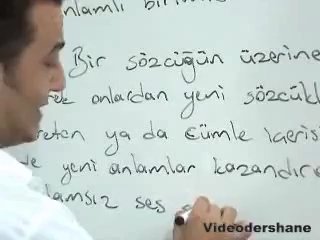 anlamlı
Bir sözcüğün üzerine
onlardan yeni sözcükl
üreten ya da cümle içerisi
yeni anlamlar kazandıra
anlamsız ses
Videodershane